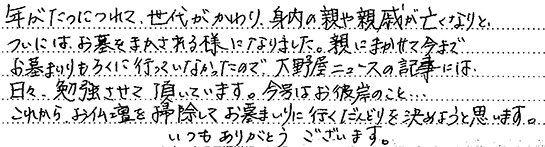 年がたつにつれて、世代がかわり、身内の親や親戚が亡くなりと、
ついにはお墓をまかされる様になりました。親にまかせて今まで
お墓まいりもろくに行っていなかったので、大野屋ニュースの記事には
日々、勉強させて頂いています。今号はお彼岸のこと…
これから、お仏壇を掃除してお墓まいりに行くだんどりを決めようと思います。
いつもありがとうございます。